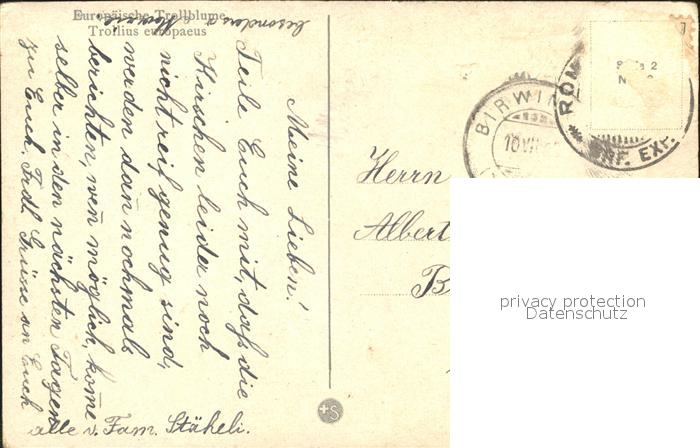 Europäische Trollblume
Trollius europaeus
Meine Lieben!
Teile Euch mit, daß die
Kirschen leider noch
nicht reif genug sind,
werden dan̄ nochmals
berichten, wen̄ möglich, kom̄e
selber in den nächsten Tagen
zu Euch. Frdl. Grüsse an Euch
alle v. Fam. Stäheli.
besonders
Herrn
Albert
B
BIRWIN
10 VII
ROM
EXP.
+S
privacy protection
Datenschutz